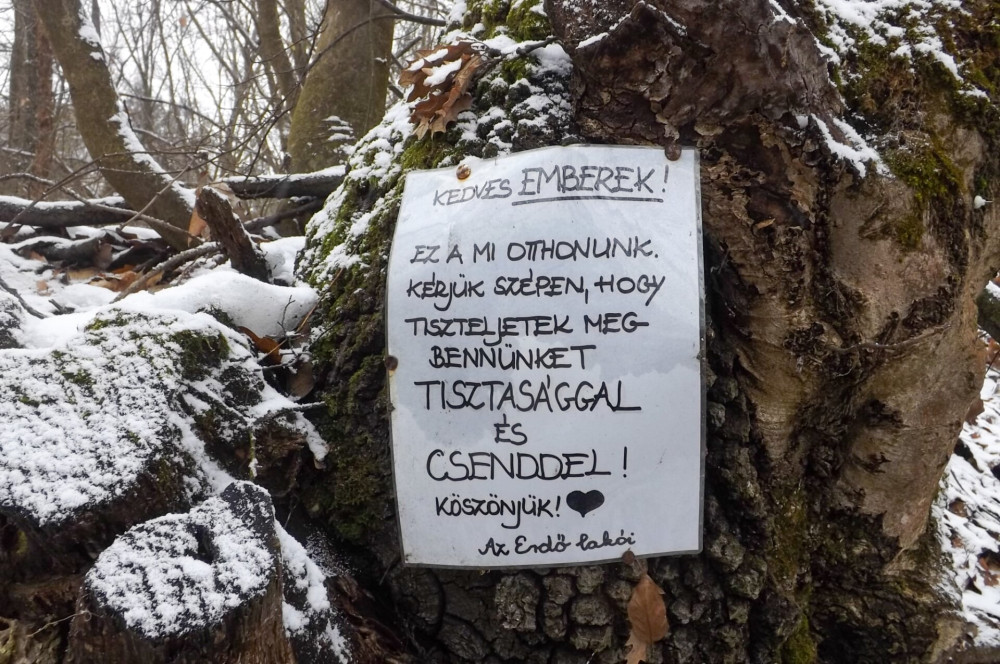 KEDVES EMBEREK!
EZ A MI OTTHONUNK.
KÉRJÜK SZÉPEN, HOGY
TISZTELJETEK MEG-
BENNÜNKET
TISZTASÁGGAL
ÉS
CSENDDEL!
KÖSZÖNJÜK! ♥
Az Erdő lakói